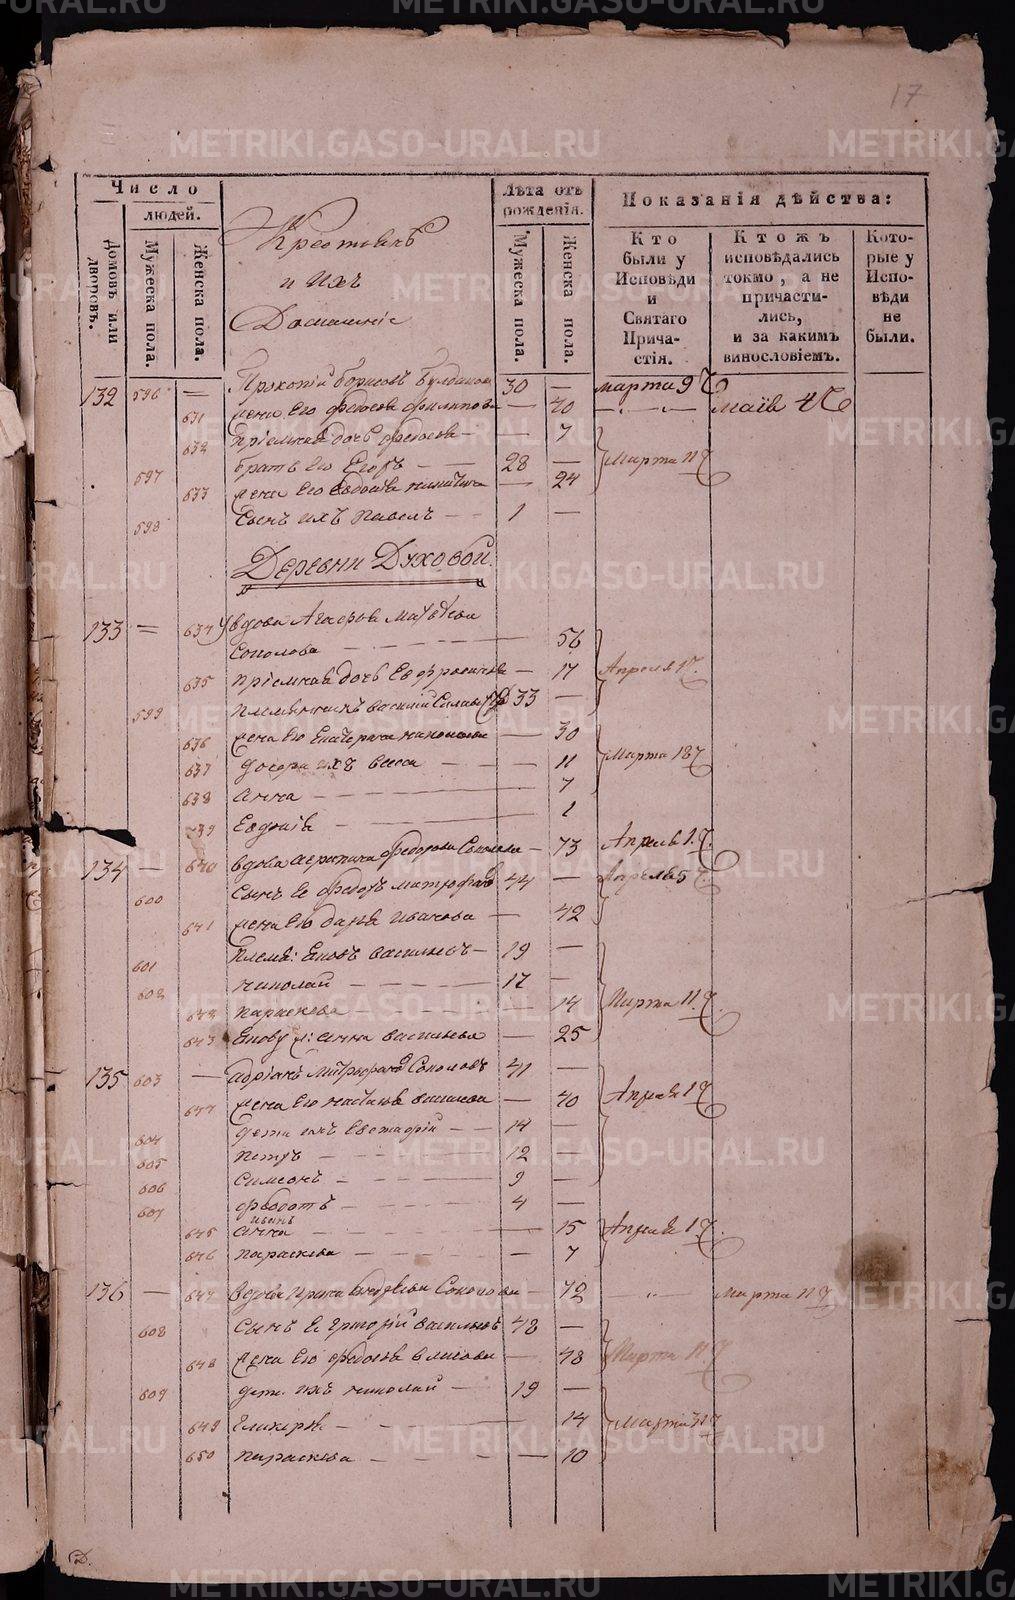 17
Число
людей.
Домовъ или дворовъ.
Мужеска пола.
Женска пола.
Крестьянъ
и ихъ
Домашніе
Лѣта отъ рожденія.
Мужеска пола.
Женска пола.
Показанія дѣйства:
Кто были у Исповѣди и Святаго Прича-стія.
Ктожъ исповѣдались токмо, а не причасти-лись, и за какимъ винословіемъ.
Кото-рые у Испо-вѣди не были.
132 596 — Прокопій Борисовъ 30 — марта 9
631 жена его Федосья Филипова — 40 маія 4
632 пріемная дочь Федосья — 7
597 братъ его Егоръ — 28 — Марта 11
633 жена его Евдокія — 24
598 сынъ ихъ Павелъ — 1 —
Деревни Духовой.
133 = 634 вдова Агафья Матвѣева
Соколова — 56
635 пріемная дочь Ефросинья — 17 Апреля 1
599 племянникъ Василій 33 —
636 жена его Екатерина — 30
637 дочери ихъ — 11 Марта 18
638 Анна — 7
739 Евдокія — 1
134 — 640 вдова Федорова Соколова — 73 Апреля 1
600 сынъ ея Федоръ Митрофановъ 44 — Апреля 5
641 жена его Дарья Иванова — 42
601 племя: Яковъ Васильевъ — 19 —
602 николай — 17 —
642 параскева — 14 Марта 11
643 Якову ж: Анна Васильева — 25
135 603 — Адріанъ Митрофановъ Соколовъ 41 —
644 жена его — 40 Апреля 1
604 дети ихъ Евстафій — 14 —
605 Петръ — 12 —
606 Симеонъ — 9 —
607 Федотъ — 4 —
645 Анна — 15 Апреля 1
646 параскева — 7
136 — 647 вдова Ирина Соколова — 72 Марта 11
608 сынъ ея Григорій Васильевъ 48 —
648 жена его Федосья — 48 Марта 11
609 дети ихъ николай — 19 —
649 Гликерія — 14 Марта
650 параскева — 10
METRIKI.GASO-URAL.RU